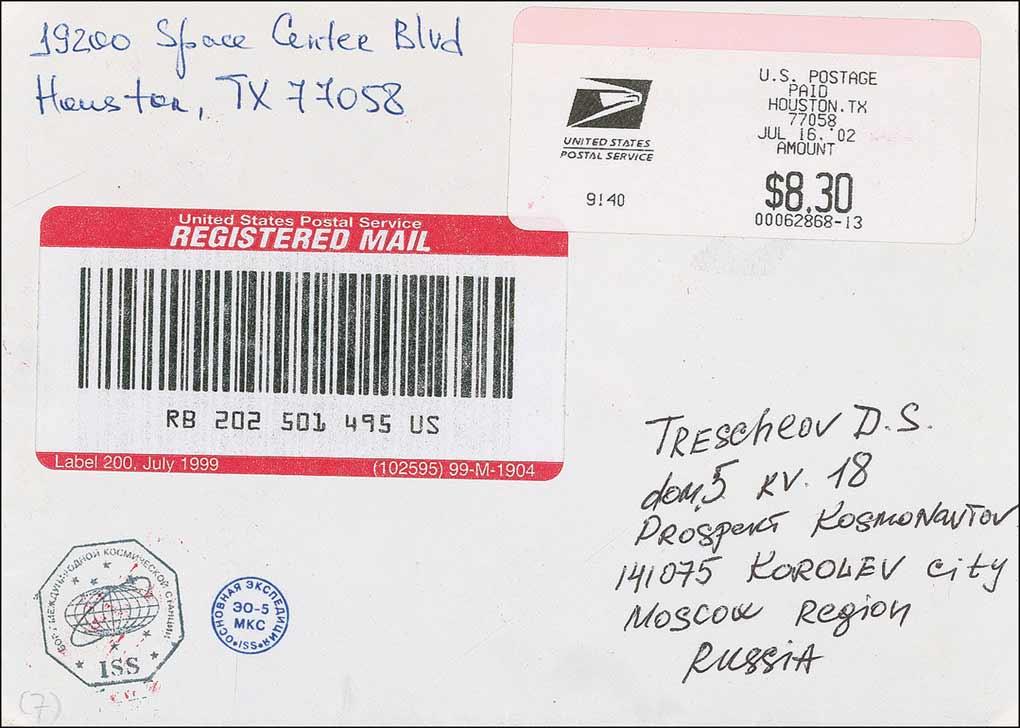 19200 Space Center Blvd
Houston, TX 77058
U.S. POSTAGE
PAID
HOUSTON.TX
77058
JUL 16.'02
AMOUNT
$8.30
00062868-13
UNITED STATES
POSTAL SERVICE
9140
United States Postal Service
REGISTERED MAIL
RB 202 501 495 US
Label 200, July 1999
(102595) 99-M-1904
TREScheov D.S.
dom,5 kv. 18
Prospekt Kosmonavtov
141075 KOROLEV city
Moscow Region
RUSSIA
БОРТ МЕЖДУНАРОДНОЙ КОСМИЧЕСКОЙ СТАНЦИИ
ISS
ОСНОВНАЯ ЭКСПЕДИЦИЯ
ЭО-5
МКС
•ISS•
(7)